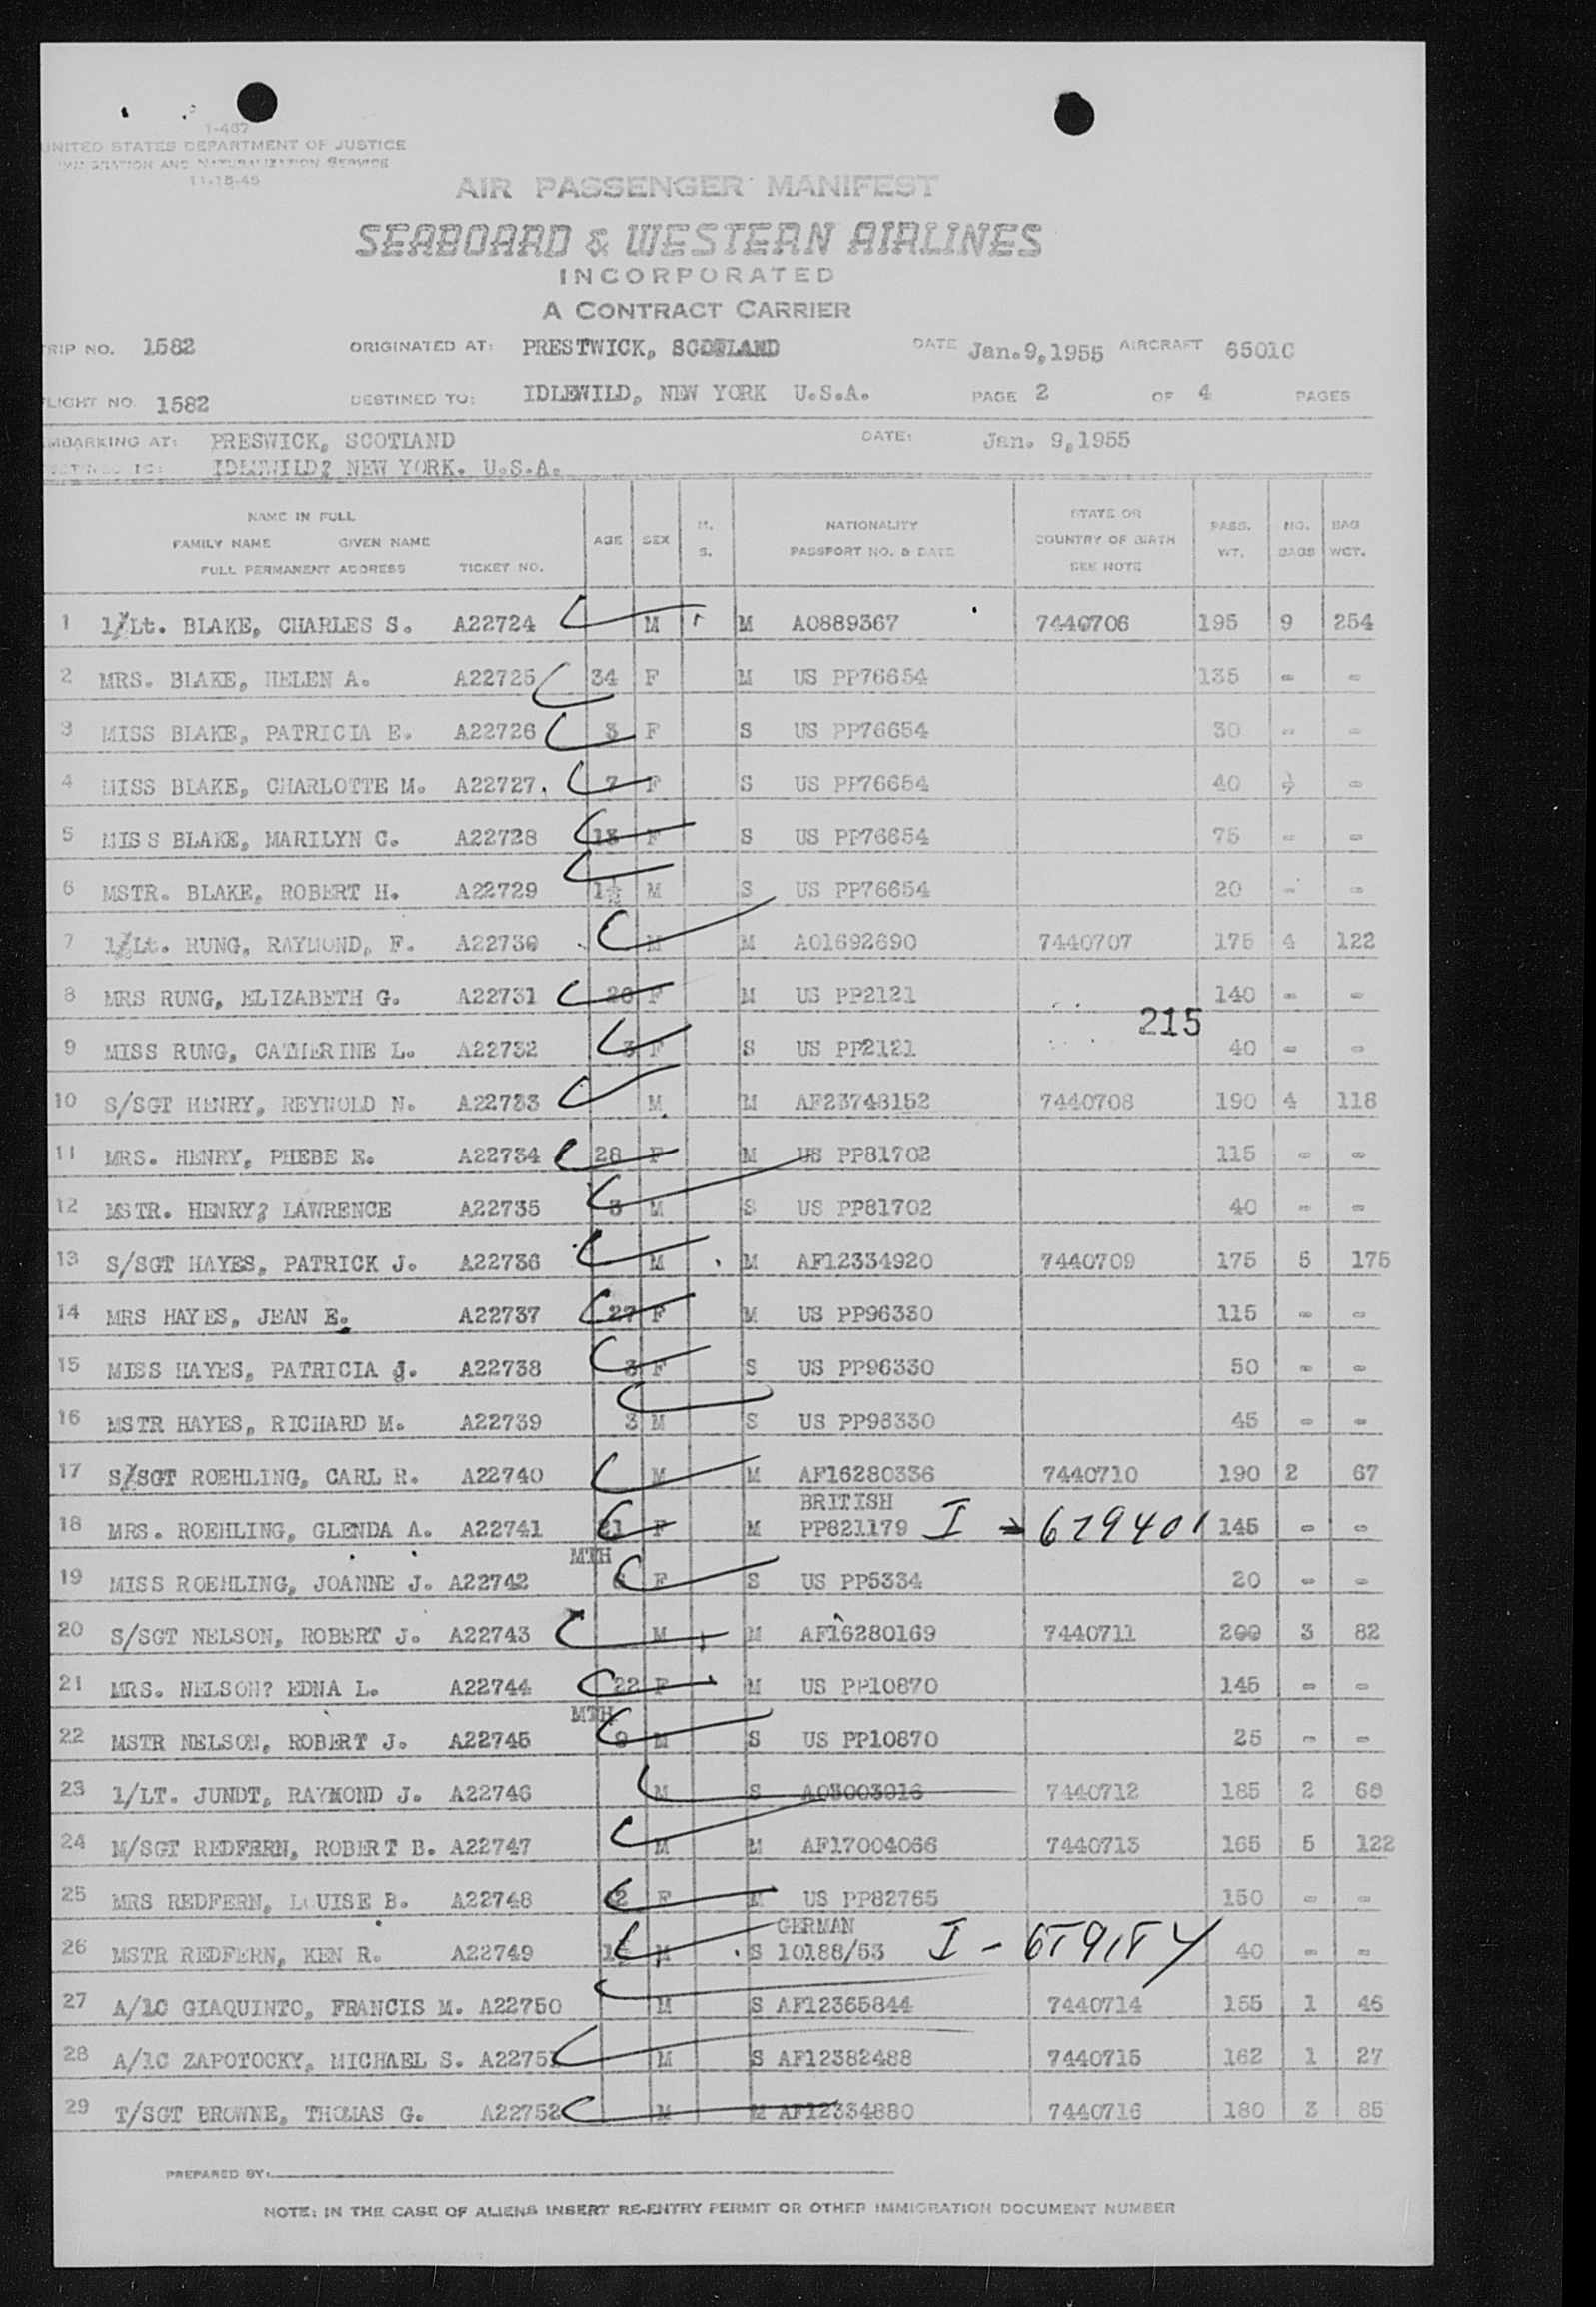 1-467
UNITED STATES DEPARTMENT OF JUSTICE
IMMIGRATION AND NATURALIZATION SERVICE
11-15-45
AIR PASSENGER MANIFEST
SEABOARD & WESTERN AIRLINES
INCORPORATED
A CONTRACT CARRIER
RIP NO. 1582 ORIGINATED AT: PRESTWICK, SCOTLAND DATE Jan.9,1955 AIRCRAFT 6501C
LIGHT NO. 1582 DESTINED TO: IDLEWILD, NEW YORK U.S.A. PAGE 2 OF 4 PAGES
MBARKING AT: PRESWICK, SCOTLAND DATE: Jan. 9,1955
TO: IDLEWILD? NEW YORK. U.S.A.
NAME IN FULL
FAMILY NAME GIVEN NAME
FULL PERMANENT ADDRESS TICKET NO. AGE SEX M. S. NATIONALITY PASSPORT NO. & DATE STATE OR COUNTRY OF BIRTH SEE NOTE PASS. WT. NO. BAGS BAG WGT.
1 1/Lt. BLAKE, CHARLES S. A22724 M M AO889367 7440706 195 9 254
2 MRS. BLAKE, HELEN A. A22725 34 F M US PP76654 135 - -
3 MISS BLAKE, PATRICIA E. A22726 3 F S US PP76654 30 - -
4 MISS BLAKE, CHARLOTTE M. A22727 7 F S US PP76654 40 -
5 MISS BLAKE, MARILYN C. A22728 13 F S US PP76654 75 - -
6 MSTR. BLAKE, ROBERT H. A22729 1½ M S US PP76654 20 - -
7 1/Lt. RUNG, RAYMOND, F. A22730 M M AO1692690 7440707 175 4 122
8 MRS RUNG, ELIZABETH G. A22731 26 F M US PP2121 140 - -
215
9 MISS RUNG, CATHERINE L. A22732 3 F S US PP2121 40 - -
10 S/SGT HENRY, REYNOLD N. A22733 M M AF23748152 7440708 190 4 118
11 MRS. HENRY, PHEBE E. A22734 28 F M US PP81702 115 - -
12 MSTR. HENRY? LAWRENCE A22735 3 M S US PP81702 40 - -
13 S/SGT HAYES, PATRICK J. A22736 M M AF12334920 7440709 175 5 175
14 MRS HAYES, JEAN E. A22737 27 F M US PP96330 115 - -
15 MISS HAYES, PATRICIA J. A22738 3 F S US PP96330 50 - -
16 MSTR HAYES, RICHARD M. A22739 3 M S US PP96330 45 - -
17 S/SGT ROEHLING, CARL R. A22740 M M AF16280336 7440710 190 2 67
BRITISH
18 MRS. ROEHLING, GLENDA A. A22741 21 F M PP821179 I - 679401 145 - -
MTH
19 MISS ROEHLING, JOANNE J. A22742 6 F S US PP5334 20 - -
20 S/SGT NELSON, ROBERT J. A22743 M M AF16280169 7440711 200 3 82
21 MRS. NELSON? EDNA L. A22744 22 F M US PP10870 145 - -
MTH
22 MSTR NELSON, ROBERT J. A22745 9 M S US PP10870 25 - -
23 1/LT. JUNDT, RAYMOND J. A22746 M S AO3003916 7440712 185 2 68
24 M/SGT REDFERN, ROBERT B. A22747 M M AF17004066 7440713 165 5 122
25 MRS REDFERN, LOUISE B. A22748 42 F M US PP82765 150 - -
GERMAN
26 MSTR REDFERN, KEN R. A22749 M S 10188/53 I - 40 - -
27 A/1C GIAQUINTO, FRANCIS M. A22750 M S AF12365844 7440714 155 1 46
28 A/1C ZAPOTOCKY, MICHAEL S. A22751 M S AF12382488 7440715 162 1 27
29 T/SGT BROWNE, THOMAS G. A22752 M M AF12334880 7440716 180 3 85
PREPARED BY:
NOTE: IN THE CASE OF ALIENS INSERT RE-ENTRY PERMIT OR OTHER IMMIGRATION DOCUMENT NUMBER